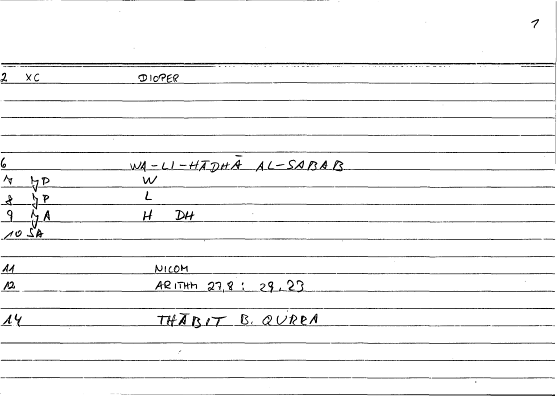 1
2 XC DIOPER
6 WA-LI-HĀDHĀ AL-SABAB
7 P W
8 P L
9 A H DH
10 SA
11 NICOM
12 ARITHM 27,8 : 29.23
14 THĀBIT B. QURRA